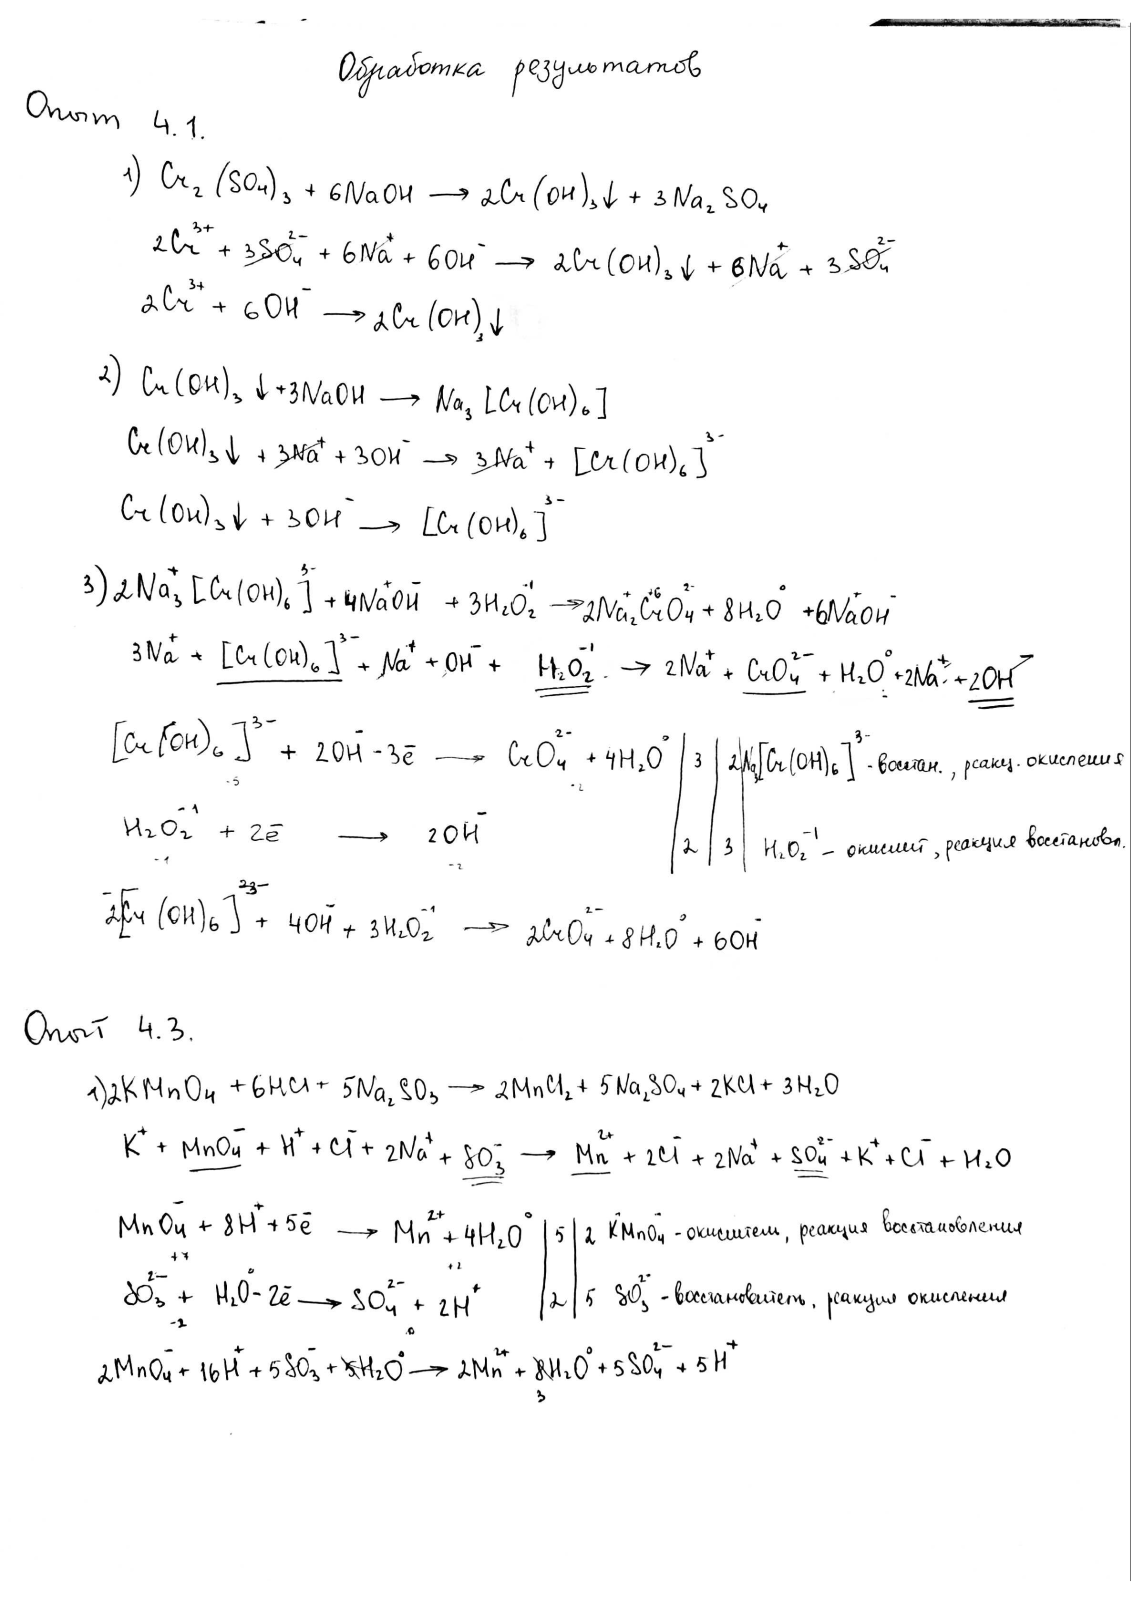 Обработка результатов
Опыт 4.1.
1) Cr₂(SO₄)₃ + 6NaOH → 2Cr(OH)₃↓ + 3Na₂SO₄
2Cr³⁺ + 3SO₄²⁻ + 6Na⁺ + 6OH⁻ → 2Cr(OH)₃↓ + 6Na⁺ + 3SO₄²⁻
2Cr³⁺ + 6OH⁻ → 2Cr(OH)₃↓
2) Cr(OH)₃↓ + 3NaOH → Na₃[Cr(OH)₆]
Cr(OH)₃↓ + 3Na⁺ + 3OH⁻ → 3Na⁺ + [Cr(OH)₆]³⁻
Cr(OH)₃↓ + 3OH⁻ → [Cr(OH)₆]³⁻
3) 2Na₃⁺[Cr(OH)₆]³⁻ + 4Na⁺OH⁻ + 3H₂O₂⁻¹ → 2Na₂⁺Cr⁺⁶O₄²⁻ + 8H₂O⁰ + 6Na⁺OH⁻
3Na⁺ + [Cr(OH)₆]³⁻ + Na⁺ + OH⁻ + H₂O₂⁻¹ → 2Na⁺ + CrO₄²⁻ + H₂O⁰ + 2Na⁺ + 2OH⁻
[Cr(OH)₆]³⁻ + 2OH⁻ - 3ē → CrO₄²⁻ + 4H₂O⁰ | 3 | 2 Na₃[Cr(OH)₆]³⁻ - восстан., реакц. окисления
-5 -2
H₂O₂⁻¹ + 2ē → 2OH⁻ | 2 | 3 H₂O₂⁻¹ – окислит, реакция восстановл.
-1 -2
2[Cr(OH)₆]²³⁻ + 4OH⁻ + 3H₂O₂⁻¹ → 2CrO₄²⁻ + 8H₂O⁰ + 6OH⁻
Опыт 4.3.
1) 2KMnO₄ + 6HCl + 5Na₂SO₃ → 2MnCl₂ + 5Na₂SO₄ + 2KCl + 3H₂O
K⁺ + MnO₄⁻ + H⁺ + Cl⁻ + 2Na⁺ + SO₃⁻ → Mn²⁺ + 2Cl⁻ + 2Na⁺ + SO₄²⁻ + K⁺ + Cl⁻ + H₂O
MnO₄⁻ + 8H⁺ + 5ē → Mn²⁺ + 4H₂O⁰ | 5 | 2 K⁺MnO₄⁻ - окислитель, реакция восстановления
+7 +2
SO₃²⁻ + H₂O⁰ - 2ē → SO₄²⁻ + 2H⁺ | 2 | 5 SO₃²⁻ - восстановитель, реакция окисления
-2 0
2MnO₄⁻ + 16H⁺ + 5SO₃⁻ + 5H₂O⁰ → 2Mn²⁺ + 8H₂O⁰ + 5SO₄²⁻ + 5H⁺
3